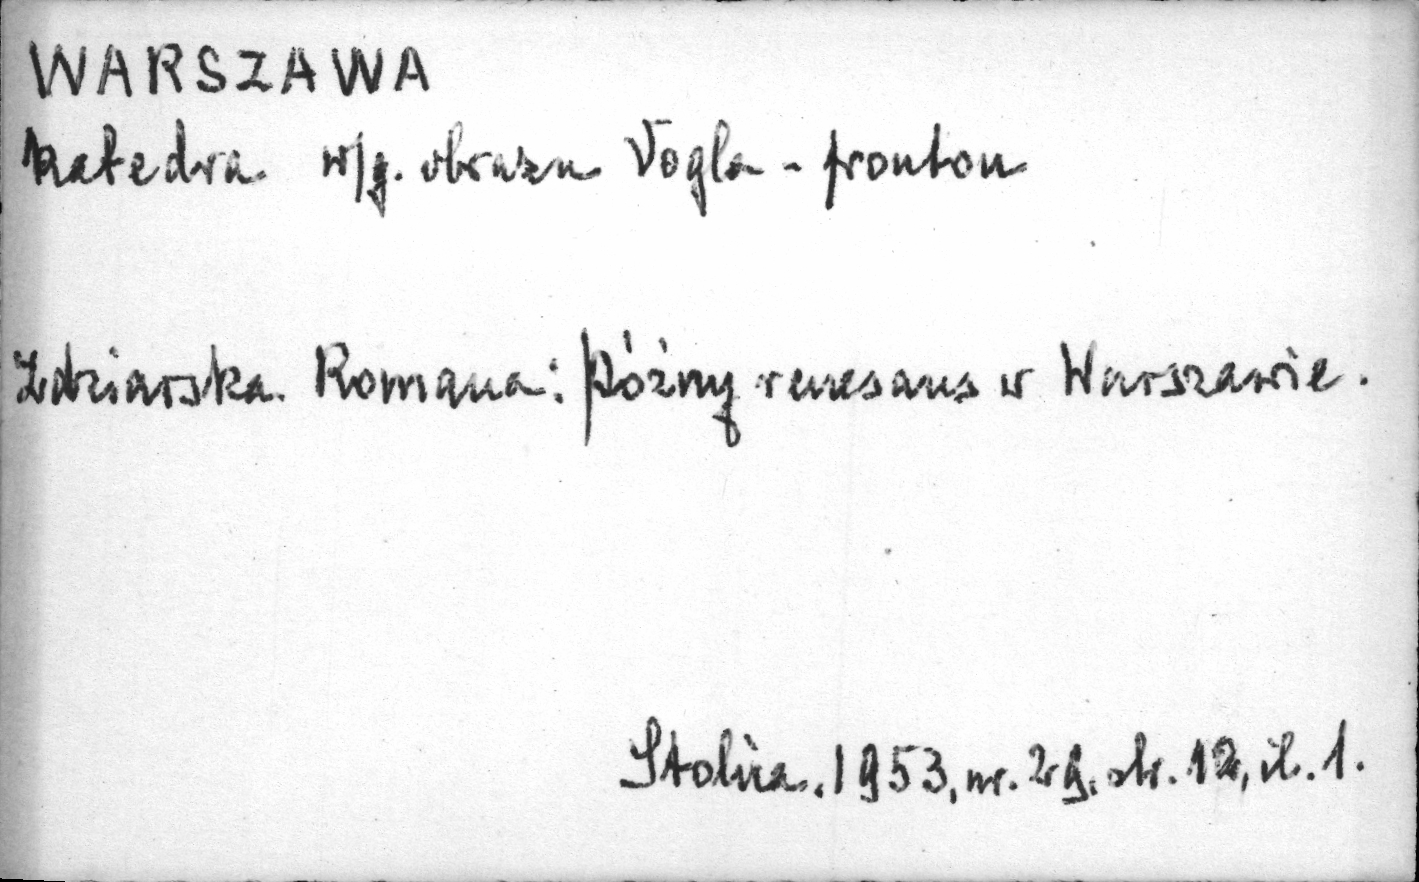 WARSZAWA
Katedra w/g. obrazu Vogla - fronton
Zdziarska Romana: Późny renesans w Warszawie.
Stolica. 1953, nr. 29. str. 12, il. 1.